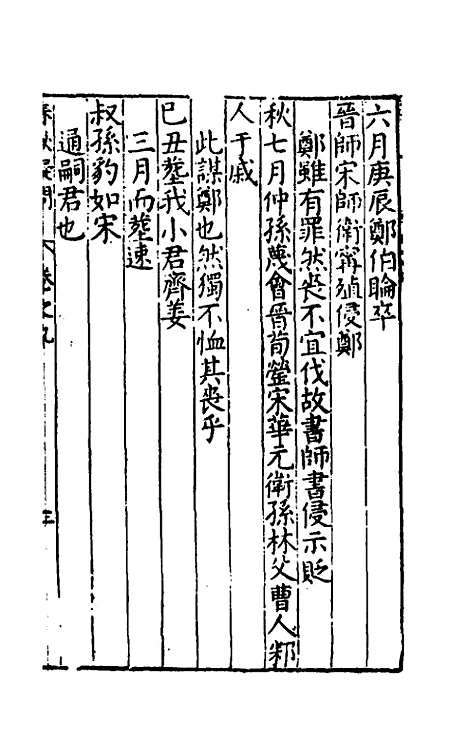 六月庚辰鄭伯睔卒
晉師宋師衛甯殖侵鄭
鄭雖有罪然喪不宜伐故書師書侵示貶
秋七月仲孫蔑會晉荀罃宋華元衛孫林父曹人邾
人于戚
此謀鄭也然獨不恤其喪乎
已丑塟我小君齊姜
三月而塟速
叔孫豹如宋
通嗣君也
春秋疑問 卷之九 三